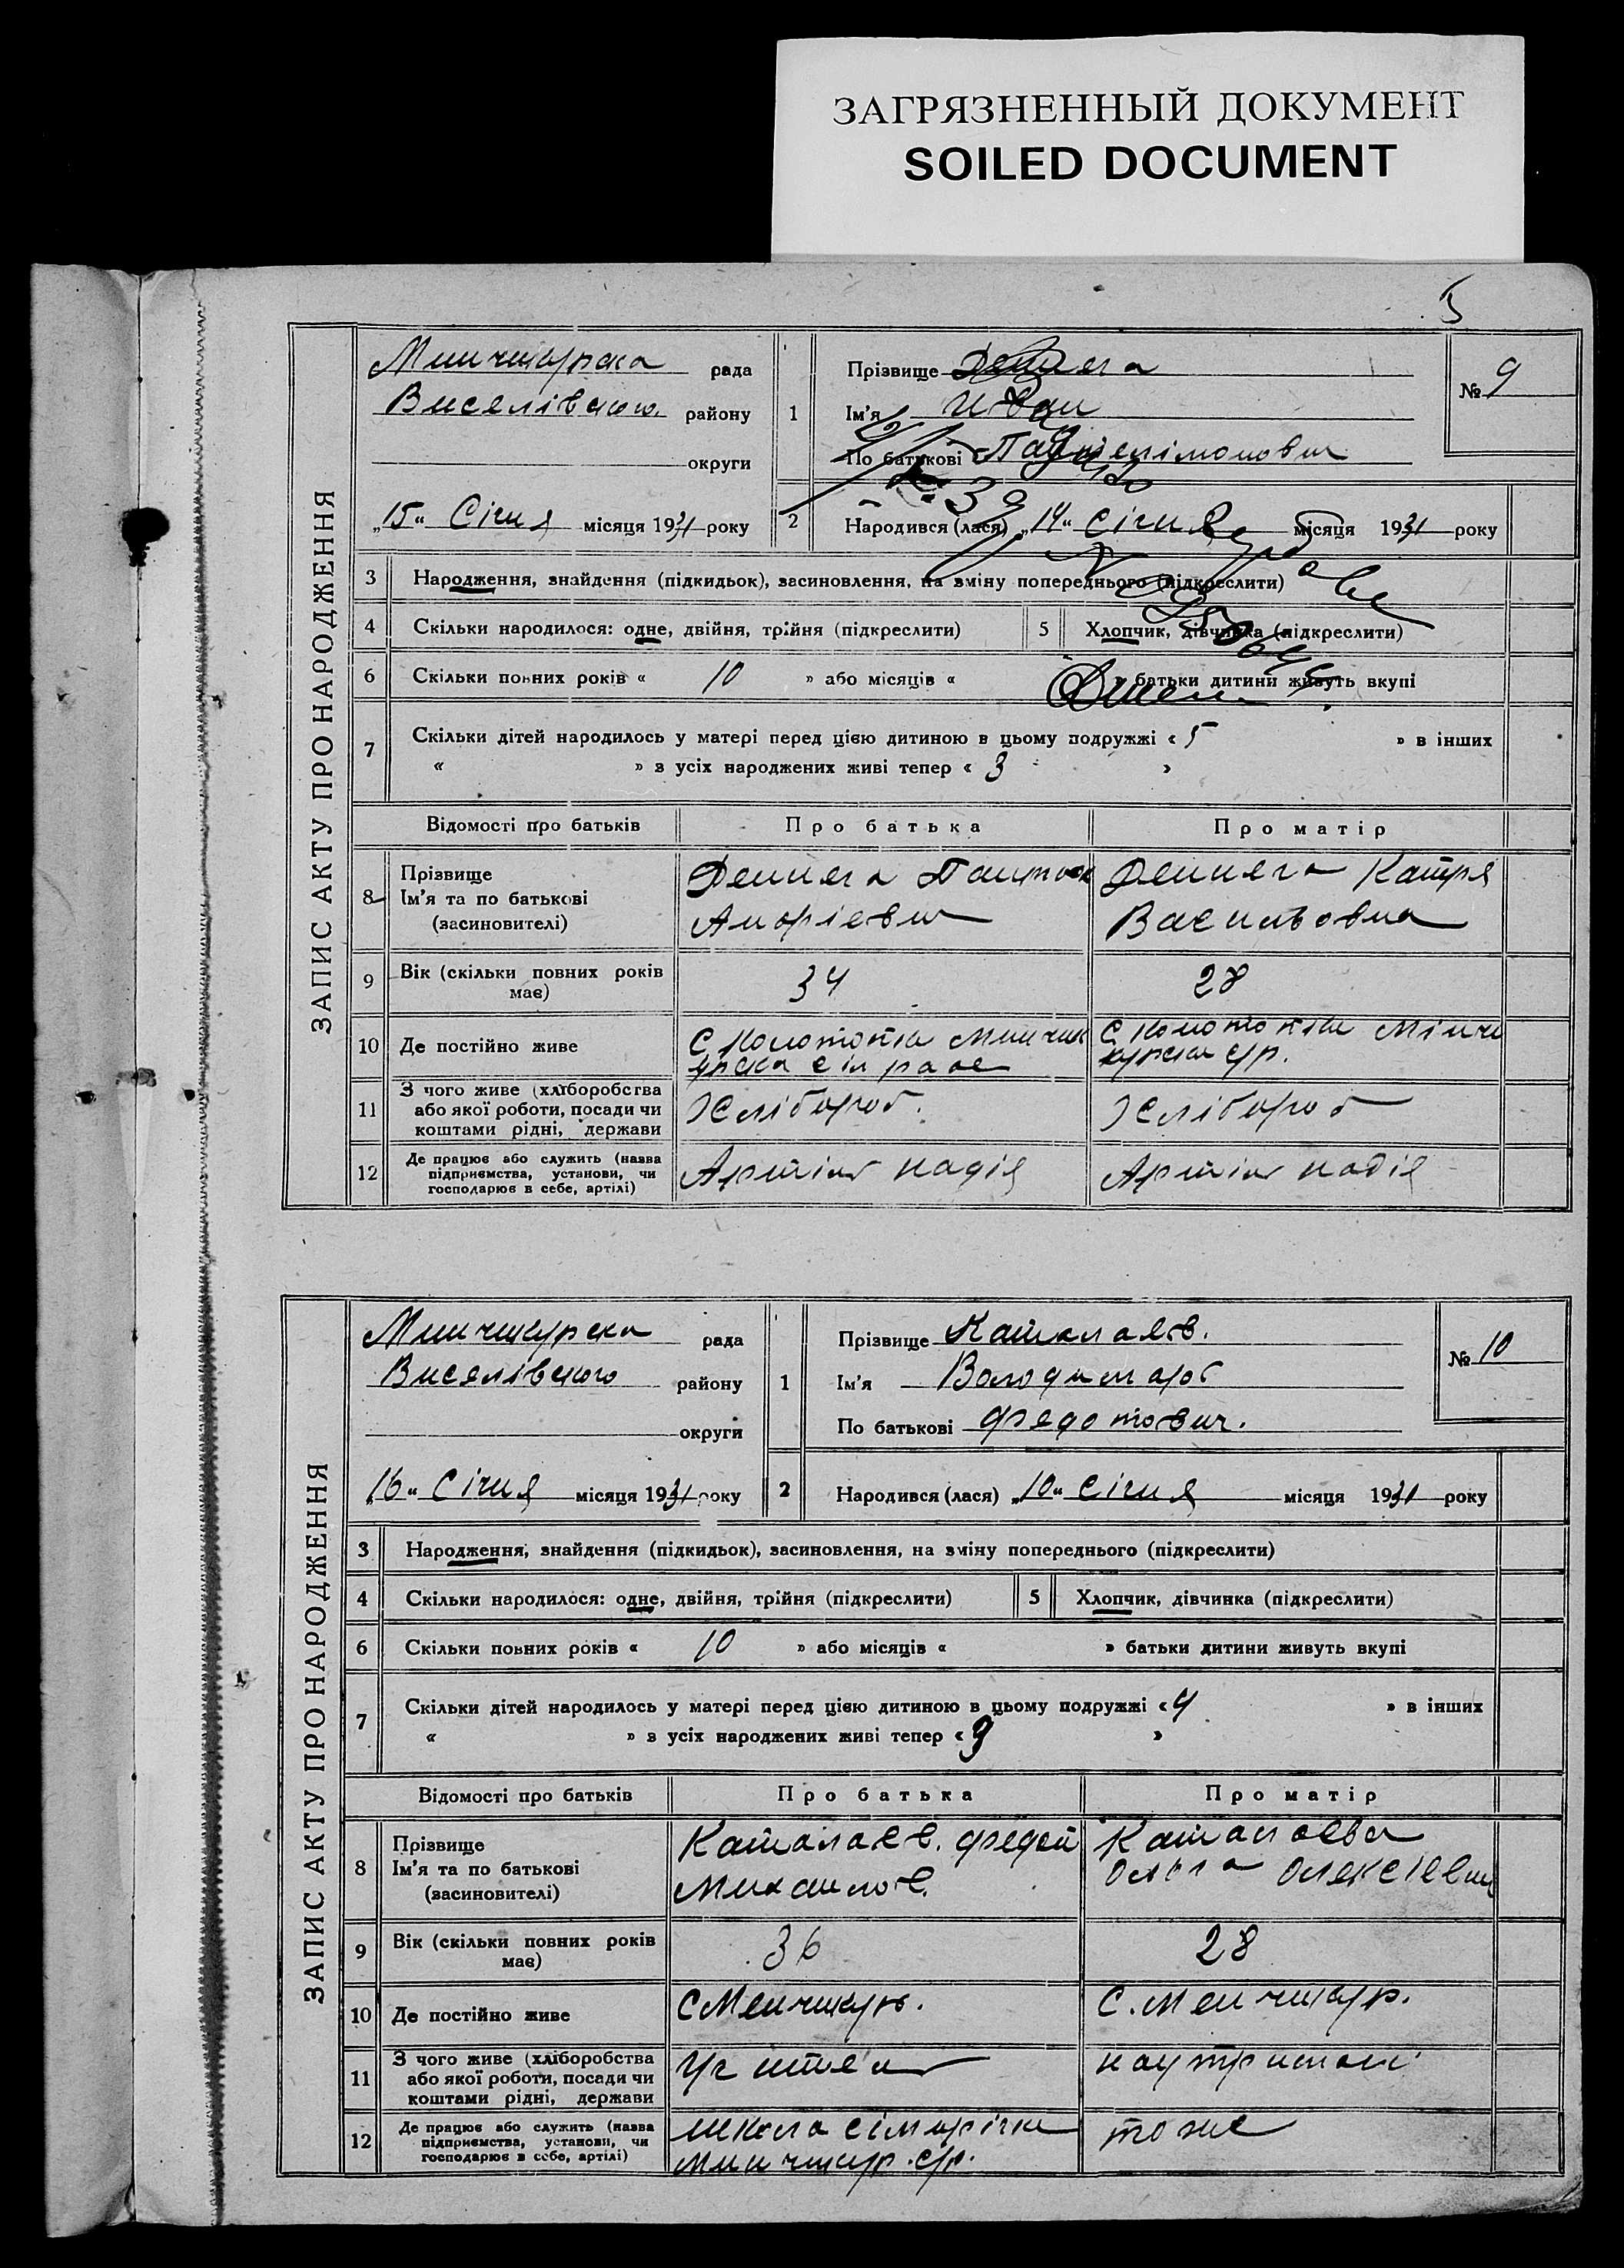 ЗАГРЯЗНЕННЫЙ ДОКУМЕНТ
SOILED DOCUMENT
5
ЗАПИС АКТУ ПРО НАРОДЖЕННЯ
Минчикурска рада
Виселівського району
округи
„15“ Січня місяця 1931 року
1 Прізвище
Ім'я Иван
По батькові
№ 9
2 Народився (лася) „14“ Січня місяця 1931 року
3 Народження, знайдення (підкидьок), засиновлення, на зміну попереднього (підкреслити)
4 Скільки народилося: одне, двійня, трійня (підкреслити) 5 Хлопчик, дівчинка (підкреслити)
6 Скільки повних років « 10 » або місяців « » батьки дитини живуть вкупі
7 Скільки дітей народилось у матері перед цією дитиною в цьому подружжі « 5 » в інших
« » з усіх народжених живі тепер « 3 »
Відомості про батьків Про батька Про матір
8 Прізвище
Ім'я та по батькові
(засиновителі)
Деинега Деинега Катря
Андріевич Васильовна
9 Вік (скільки повних років має) 34 28
10 Де постійно живе
11 З чого живе (хліборобства або якої роботи, посади чи коштами рідні, держави Хлібороб. Хлібороб
12 Де працює або служить (назва підприємства, установи, чи господарює в себе, артілі) Артіль надія Артіль надія
ЗАПИС АКТУ ПРО НАРОДЖЕННЯ
Минчикурска рада
Виселівського району
округи
„16“ Січня місяця 1931 року
1 Прізвище Каталаев.
Ім'я Володимар
По батькові Федотович.
№ 10
2 Народився (лася) „10“ Січня місяця 1931 року
3 Народження, знайдення (підкидьок), засиновлення, на зміну попереднього (підкреслити)
4 Скільки народилося: одне, двійня, трійня (підкреслити) 5 Хлопчик, дівчинка (підкреслити)
6 Скільки повних років « 10 » або місяців « » батьки дитини живуть вкупі
7 Скільки дітей народилось у матері перед цією дитиною в цьому подружжі « 4 » в інших
« » з усіх народжених живі тепер « »
Відомості про батьків Про батька Про матір
8 Прізвище
Ім'я та по батькові
(засиновителі)
Каталаев. Федот Каталаева
Михаилов. Ольга Олексіевна
9 Вік (скільки повних років має) 36 28
10 Де постійно живе С Менчикур. С. Менчикур.
11 З чого живе (хліборобства або якої роботи, посади чи коштами рідні, держави Учитель
12 Де працює або служить (назва підприємства, установи, чи господарює в себе, артілі) школа сімирічка тоже
Минчикур. с/р.